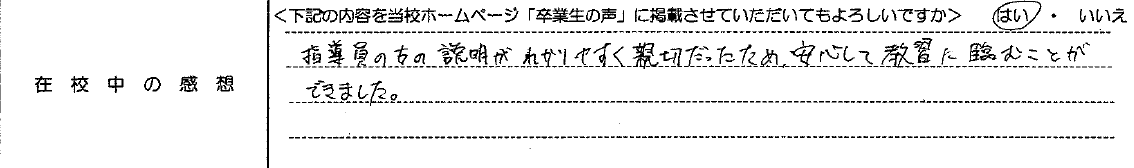 ＜下記の内容を当校ホームページ「卒業生の声」に掲載させていただいてもよろしいですか＞ はい ・ いいえ
在校中の感想
指導員の方の説明がわかりやすく親切だったため、安心して教習に臨むことが
できました。